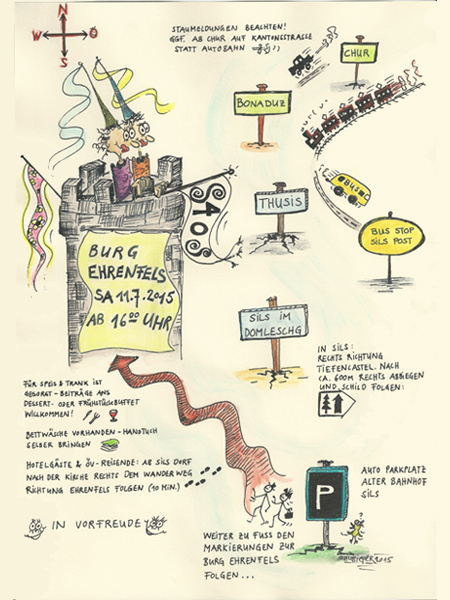 N
W O
S
STAUMELDUNGEN BEACHTEN!
GGF. AB CHUR AUF KANTONSSTRASSE
STATT AUTOBAHN
CHUR
BONADUZ
BUS
THUSIS
BUS STOP
SILS POST
BURG
EHRENFELS
SA 11.7.2015
AB 16°° UHR
SILS IM
DOMLESCHG
IN SILS:
RECHTS RICHTUNG
TIEFENCASTEL. NACH
CA. 600M RECHTS ABBIEGEN
UND SCHILD FOLGEN:
FÜR SPEIS & TRANK IST
GESORGT - BEITRÄGE ANS
DESSERT- ODER FRÜHSTÜCKBUFFET
WILLKOMMEN!
BETTWÄSCHE VORHANDEN - HANDTUCH
SELBER BRINGEN
HOTELGÄSTE & ÖV-REISENDE: AB SILS DORF
NACH DER KIRCHE RECHTS DEM WANDERWEG
RICHTUNG EHRENFELS FOLGEN (10 MIN.)
IN VORFREUDE
P
AUTO PARKPLATZ
ALTER BAHNHOF
SILS
WEITER ZU FUSS DEN
MARKIERUNGEN ZUR
BURG EHRENFELS
FOLGEN...